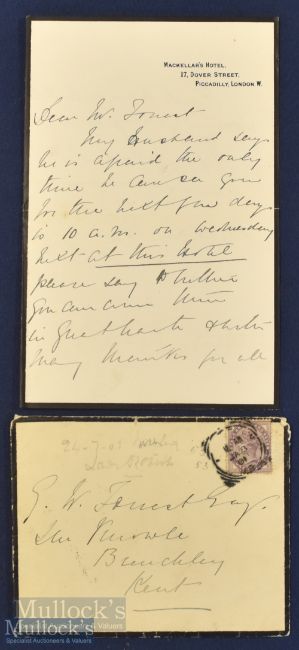 MACKELLAR'S HOTEL,
17, DOVER STREET,
PICCADILLY, LONDON W.
Dear Mr. Forrest
My Husband says
he is afraid the only
time he can see you
for the next few days
is 10 a.m. on Wednesday
next at this Hotel
please say whether
you can come then
in great haste & with
many thanks for all
G. W. Forrest Esq.
Brenchley
Kent
Mullock's
Specialist Auctioneers & Valuers
Mullock's
Specialist Auctioneers & Valuers